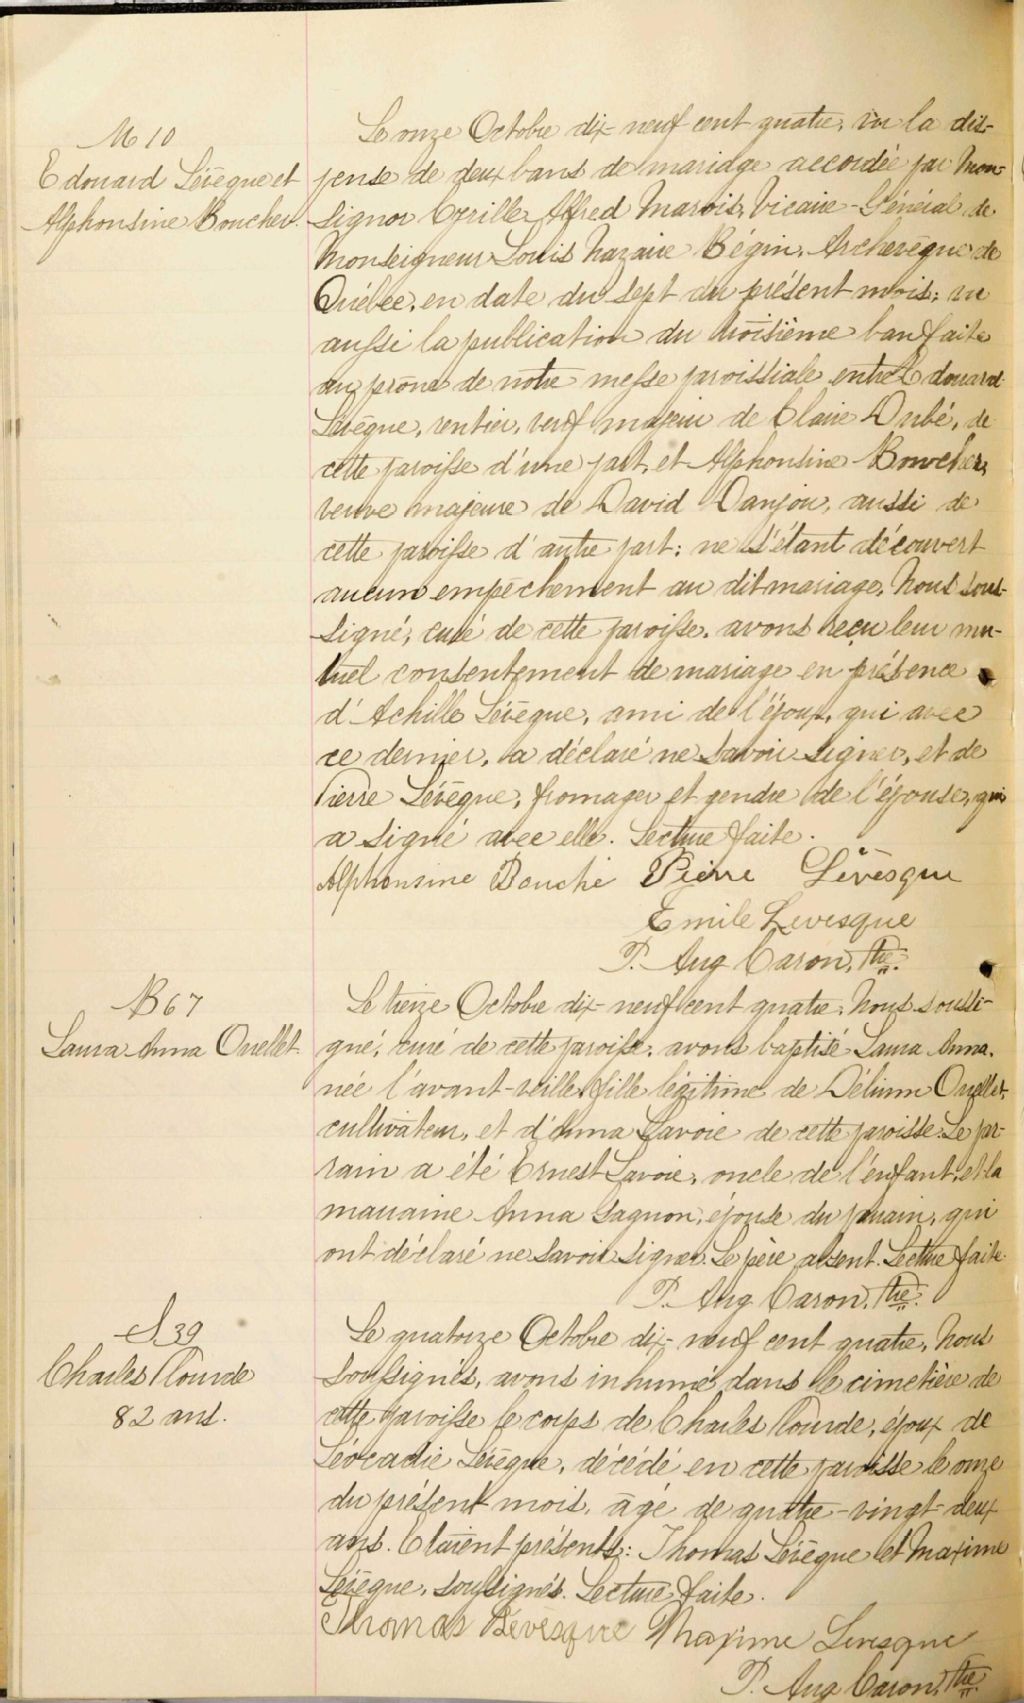 M 10
Edouard Lévêque et
Alphonsine Boucher.
Le onze Octobre dix-neuf cent quatre, vu la dis-
pense de deux bans de mariage accordée par Mon-
signor Cyrille Alfred Marois, Vicaire-Général de
Monseigneur Louis Nazaire Bégin, Archevêque de
Québec, en date du sept du présent mois; vu
aussi la publication du troisième ban faite
au prône de notre messe paroissiale entre Edouard
Lévêque, rentier, veuf majeur de Claire Dubé, de
cette paroisse d'une part, et Alphonsine Boucher,
veuve majeure de David Danjou, aussi de
cette paroisse d'autre part; ne s'étant découvert
aucun empêchement au dit mariage, Nous sous-
signé, curé de cette paroisse, avons reçu leur mu-
tuel consentement de mariage en présence
d'Achille Lévêque, ami de l'époux, qui avec
ce dernier, a déclaré ne savoir signer, et de
Pierre Lévêque, fromager et gendre de l'épouse, qui
a signé avec elle. Lecture faite.
Alphonsine Bouché Pierre Lévèsque
Emile Levesque
P. Aug Caron, Ptre.
B 67
Laura Anna Ouellet
Le treize Octobre dix-neuf cent quatre, Nous soussi-
gné, curé de cette paroisse, avons baptisé Laura Anna,
née l'avant-veille, fille légitime de Délima Ouellet,
cultivateur, et d'Anna Lavoie de cette paroisse. Le par-
rain a été Ernest Lavoie, oncle de l'enfant, et la
marraine Anna Gagnon, épouse du parrain, qui
ont déclaré ne savoir signer. Le père absent. Lecture faite.
P. Aug Caron, Ptre.
S 39
Charles Plourde
82 ans.
Le quatorze Octobre dix-neuf cent quatre, Nous
soussignés, avons inhumé dans le cimetière de
cette paroisse le corps de Charles Plourde, époux de
Léocadie Lévêque, décédé en cette paroisse le onze
du présent mois, âgé de quatre-vingt-deux
ans. Etaient présents: Thomas Lévêque et Maxime
Lévêque, soussignés. Lecture faite.
Thomas Lévèsque Maxime Levesque
P. Aug Caron, Ptre.